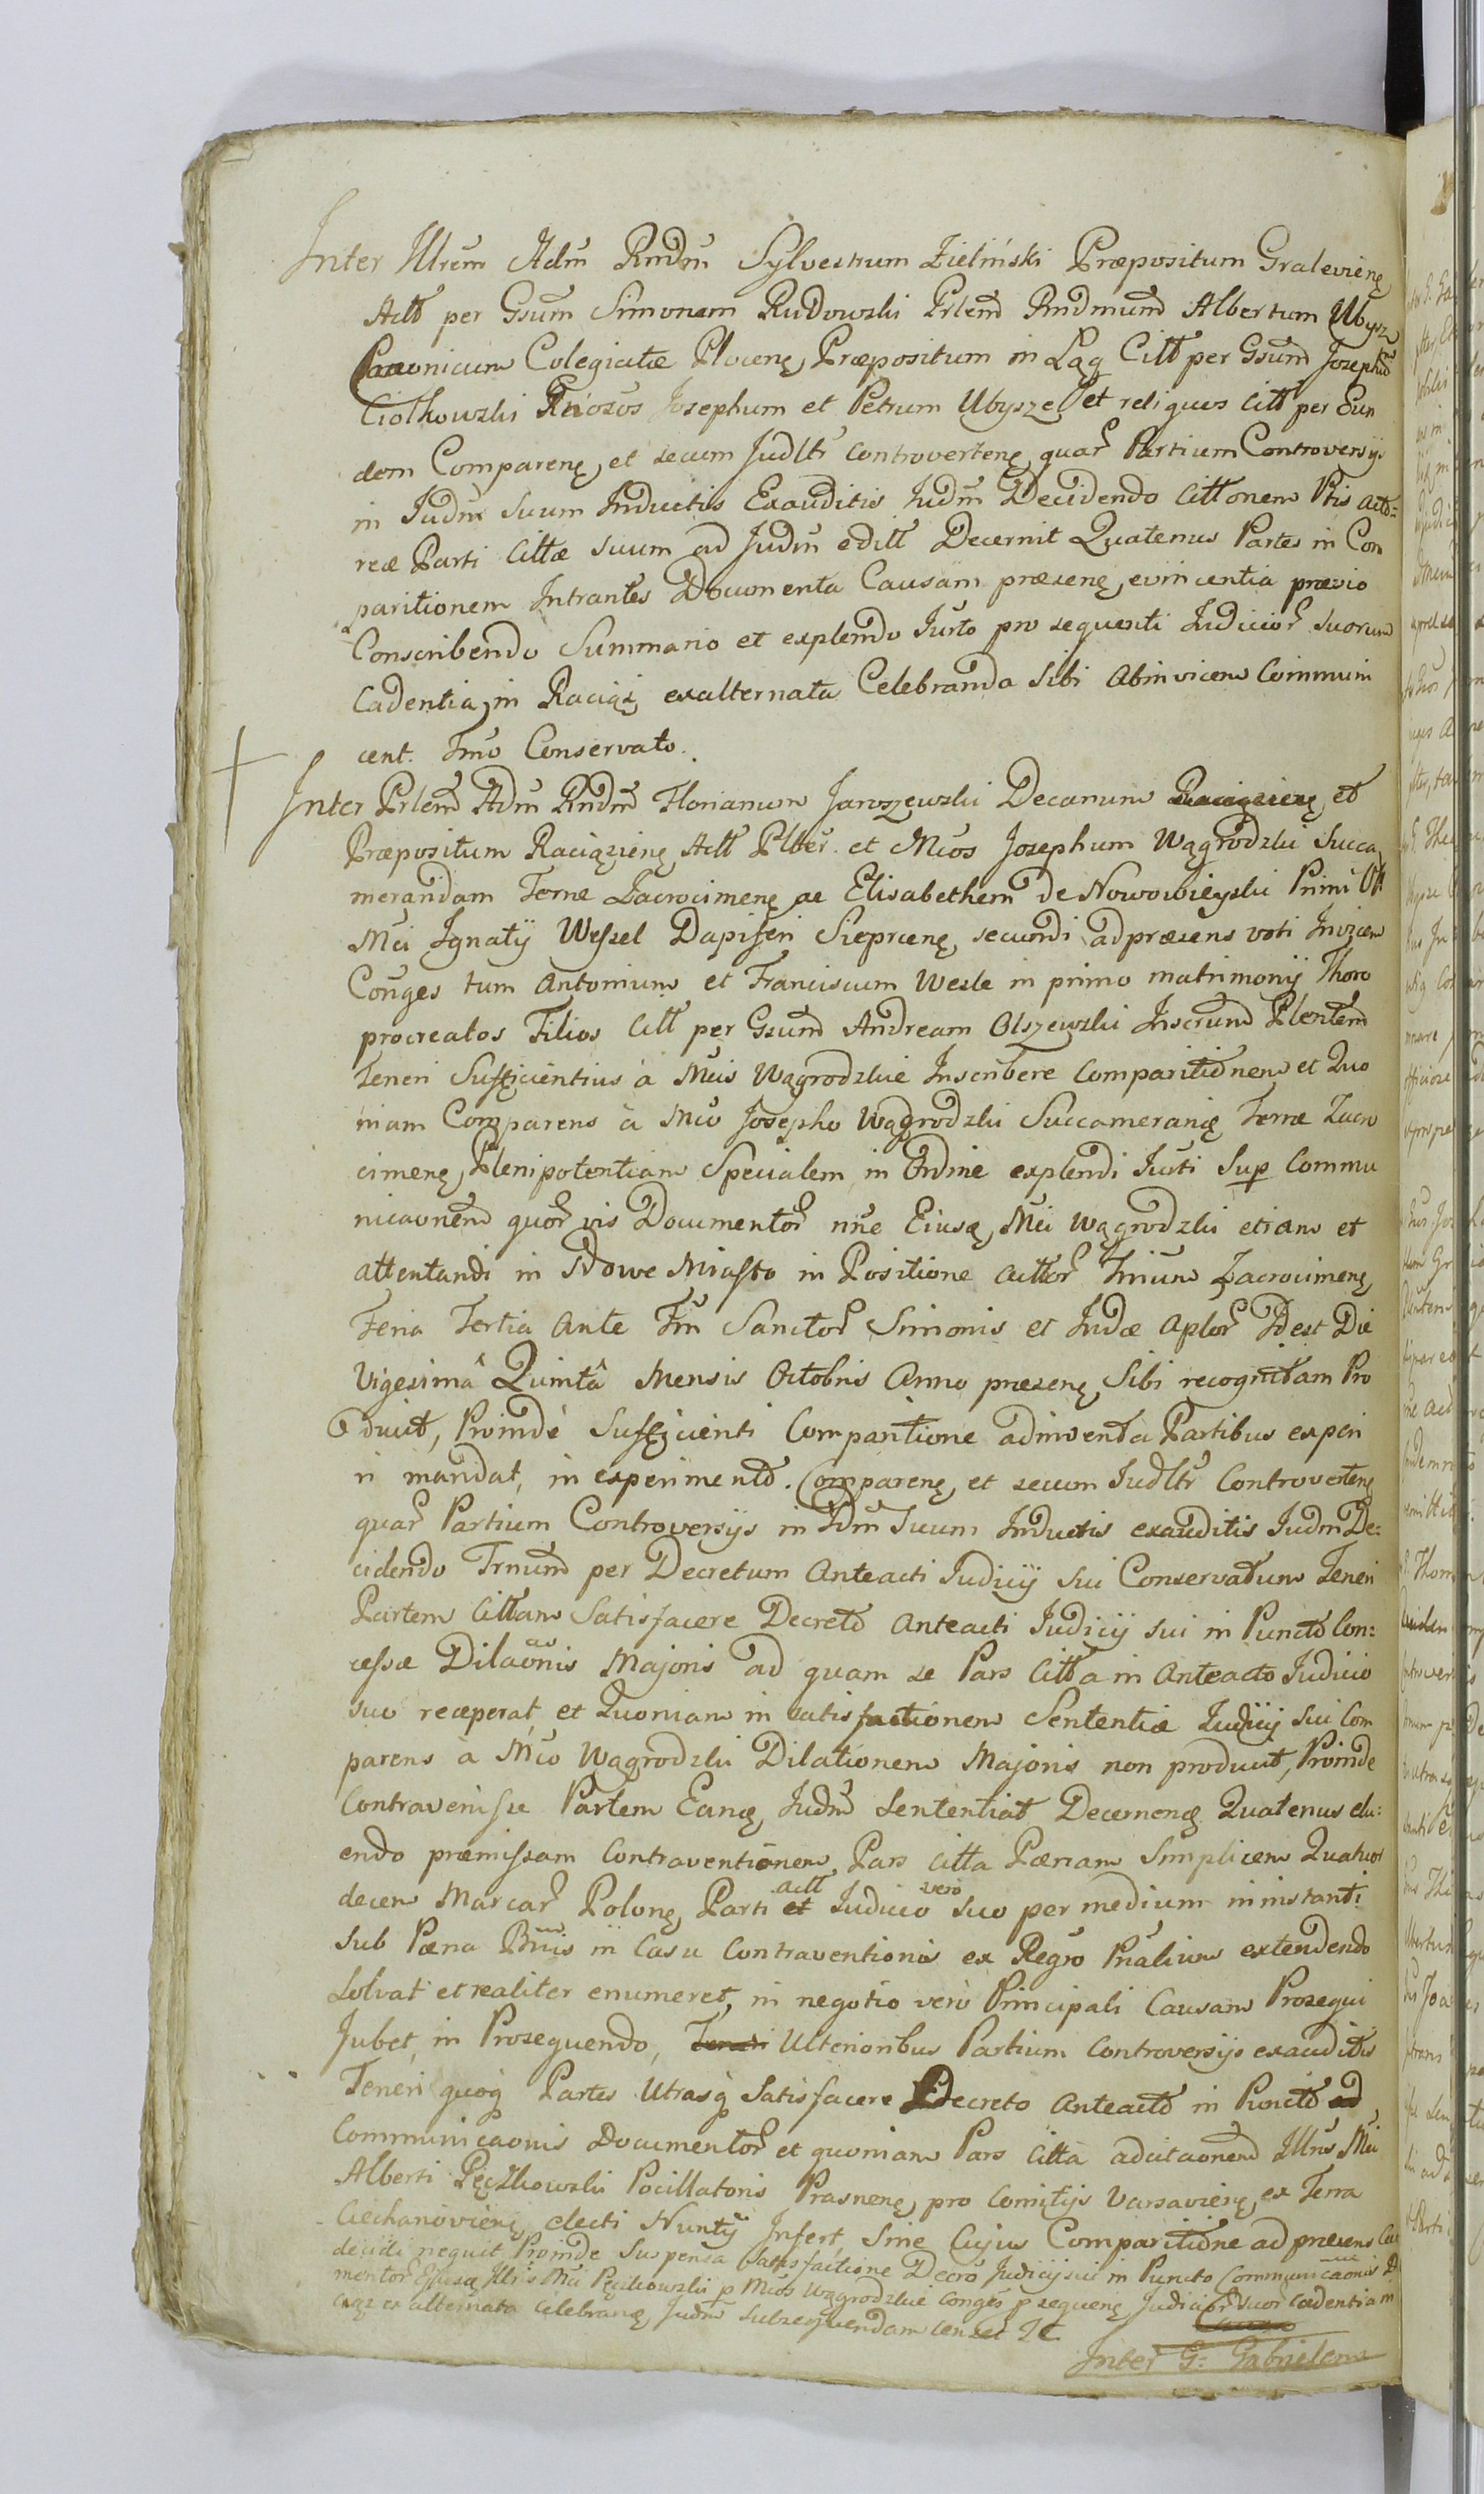 Inter Illrem Adm Rndm Sylvestrum Zieliński Præpositum Gralevienę
Actt per Gsum Simonem Rudowski Prlem Rndmum Albertum Ubysz
Canonicum Colegiatæ Plocenę, Præpositum in Łąg Citt per Gsum Josephū
Ciolkowski Gnrosos Josephum et Petrum Ubysze et reliquos Citt per Eun
dem Comparenę, et secum Judltr controvertenę, quar Partium Controversijs
in Judm Suum Inductis Exauditis Judm Decidendo Cittonem Ptis acto=
reæ Parti Cittæ suum ad Judm editt Decernit Quatenus Partes in Com
paritionem Intrantes Documenta Causam præsenę, evincentia prævio
Conscribendo Summario et explendo Jurto pro sequenti Judicior Suorum
Cadentia, in Raciąż exalternata Celebranda Sibi Abinvicem Commun
cent. Tmo Conservato.
Inter Prlem Adm Rndm Florianum Jaroszewski Decanum Raciązienę et
Præpositum Raciązienę Actt Plter. et Mcos Josephum Wągrodzki Succa
merandam Terræ Zacrocimenę ac Elisabetham de Nowowieyski Primi Ott
Mci Ignatij Wessel Dapiferi Sieprcenę, secundi ad præsens voti Invicem
Conges tum Antonium et Franciscum Wesle in primo matrimonij Thoro
procreatos Filios Citt per Gsum Andream Olszewski Inscrum Plentem
Teneri Sufficientius à Mcis Wągrodzkie Inscribere Comparitionem et Quo
niam Comparens à Mco Josepho Wągrodzki Succameranię Terræ Zacro
cimenę, Plenipotentiam Specialem in Ordine explendi Jurti Sup Commu
nicaonem quor vis Documentor nne Eiusą, Mci Wągrodzki etiam et
attentandi in Nowe Miasto in Positione actor Tmium Zacrocimenę,
Feria Tertia Ante Fm Sanctor Simonis et Judæ Aplor Idest Die
Vigesimâ Quintâ Mensis Octobris Anno præsenę, Sibi recognitam Pro
duxit, Proindè Sufficienti Comparitione adinventa Partibus experi
ri mandat, in experimento. Comparenę, et secum Judltr Controvertenę
quar Partium Controversijs in Jdm Suum Inductis exauditis Judm De=
cidendo Trnum per Decretum Anteacti Judicij sui Conservatum Teneri
Partem Cittam Satisfacere Decreto Anteacti Judicij sui in Puncto Con=
cessæ Dilaonis Majoris ad quam se Pars Citta in Anteacto Judicio
suo receperat, et Quoniam in satisfactionem Sententiæ Judicij sui Com
parens à Mco Wągrodzki Dilationem Majoris non produxit, Proinde
Contravenisse Partem Eandę Judm Sententiat Decernenę Quatenus elu=
endo præmissam Contraventionem, Pars Citta Pænam Simplicem Quatuor
decem Marcar Polonę, Parti actt et Judicio vero Suo per medium in instanti
sub Pæna Bnnis in Casu Contraventionis ex Regro Pnalium extendendo
Solvat et realiter enumeret, in negotio vero Principali Causam Prosequi
Jubet, in Prosequendo, Teneri Ulterioribus Partium Controversijs exauditis
Teneri quoq Partes Utrasq Satisfacere Decreto Anteacto in Puncto ad
Communicaonis Documentor et quoniam Pars Citta adcitaonem Illris Mci
Alberti Pęczkowski Pocillatoris Prasnenę, pro Comitijs Varsavienę, ex Terra
Ciechanovienę, electi Nuntij Infert, Sine Cujus Comparitione ad præsens Cau
decidi nequit, Proinde Suspensa Satisfactione Decro Judicij sui in Puncto Communicaonis D
mentor Ejusą Illris Mci Pęczkowski p Mcos Wągrodzkie Conges p sequenę Judicior Suor Cadentiam
Ciąz ex alternata Celebranę, Judm Subsequendam Censet Tt
Inter G: Gabrielem